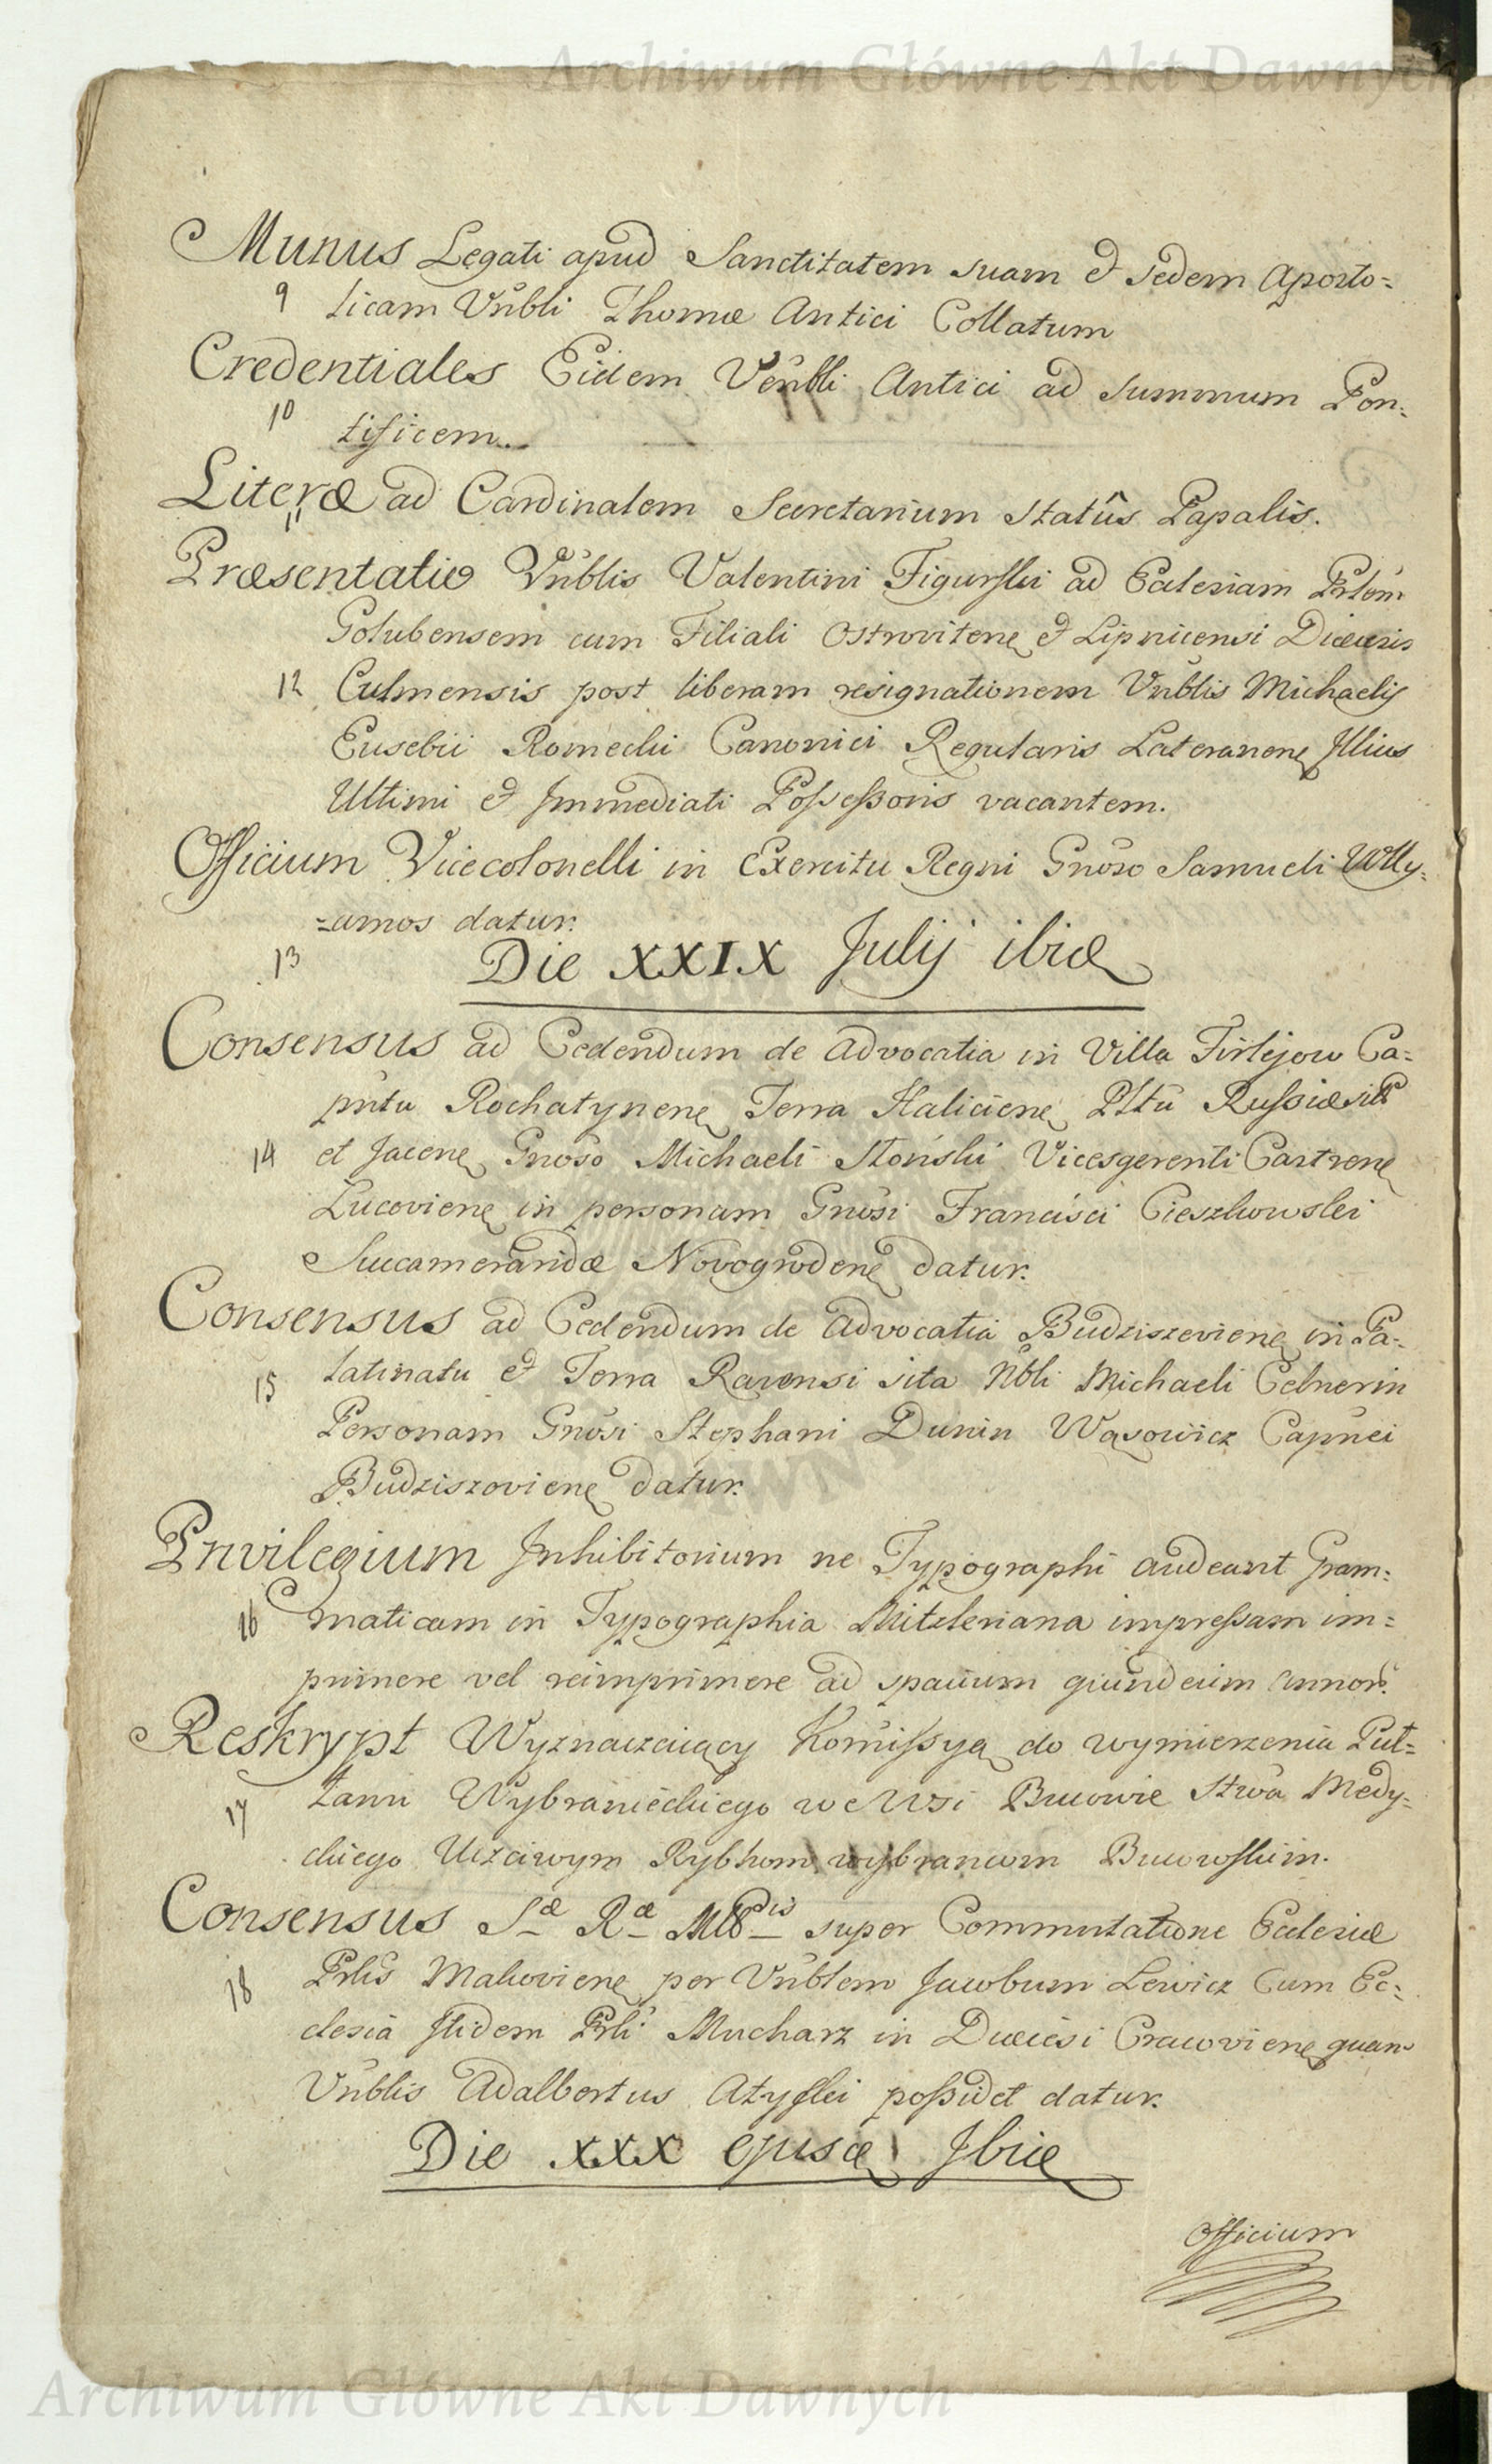 Archiwum Główne Akt Dawnych
Munus Legati apud Sanctitatem suam et sedem Aposto=
9 licam Vnbli Thomæ Antici Collatum
Credentiales Eidem Venbli Antici ad summum Pon=
10 tificem.
Literæ ad Cardinalem Secretarium statûs Papalis.
11
Præsentatio Vnblis Valentini Figurski ad Ecclesiam Prlem
Golubensem cum Filiali Ostrovitene et Lipnicensi Diæcesis
12 Culmensis post liberam resignationem Vnblis Michaelis
Eusebii Romecki Canonici Regularis Lateranene Illius
Ultimi et Immediati Possessoris vacantem.
Officium Vicecolonelli in Exercitu Regni Gnoso Samueli Willy=
=amos datur.
13 Die XXIX Julij ibid
Consensus ad Cedendum de Advocatia in Villa Firlejow Ca=
pntu Rochatynene Terra Haliciene Pltu Russiæ
14 et Jacene Gnoso Michaeli Słoński Vicesgerenti Castrene
Lucoviene in personam Gnosi Francisci Cieszkowski
Succamerandæ Novogrodene datur.
Consensus ad Cedendum de Advocatia Budziszeviene in Pa=
15 latinatu et Terra Ravensi sita Nbli Michaeli Celner in
Personam Gnosi Stephani Dunin Wąsowicz Capnei
Budziszoviene datur.
Privilegium Inhibitorium ne Typographi audeant Gram=
16 maticam in Typographia Mitzleriana impressam im=
primere vel reimprimere ad spatium quindecim annor.
Reskrypt Wyznaczaiący Kommissyą do wymierzenia Puł=
17 łanu Wybranieckiego we Wsi Bucowie Stwa Medy=
ckiego Uczciwym Rybkom wybrancom Bucowskim.
Consensus Sæ Ræ Mttis super Commutatione Ecclesiæ
18 Prlis Makoviene per Vnblem Jacobum Lewicz Cum Ec=
clesia itidem Prli Mucharz in Diæcesi Cracoviene quam
Vnblis Adalbertus Atyski possidet datur.
Die XXX ejusd Ibid
Officium
Archiwum Główne Akt Dawnych